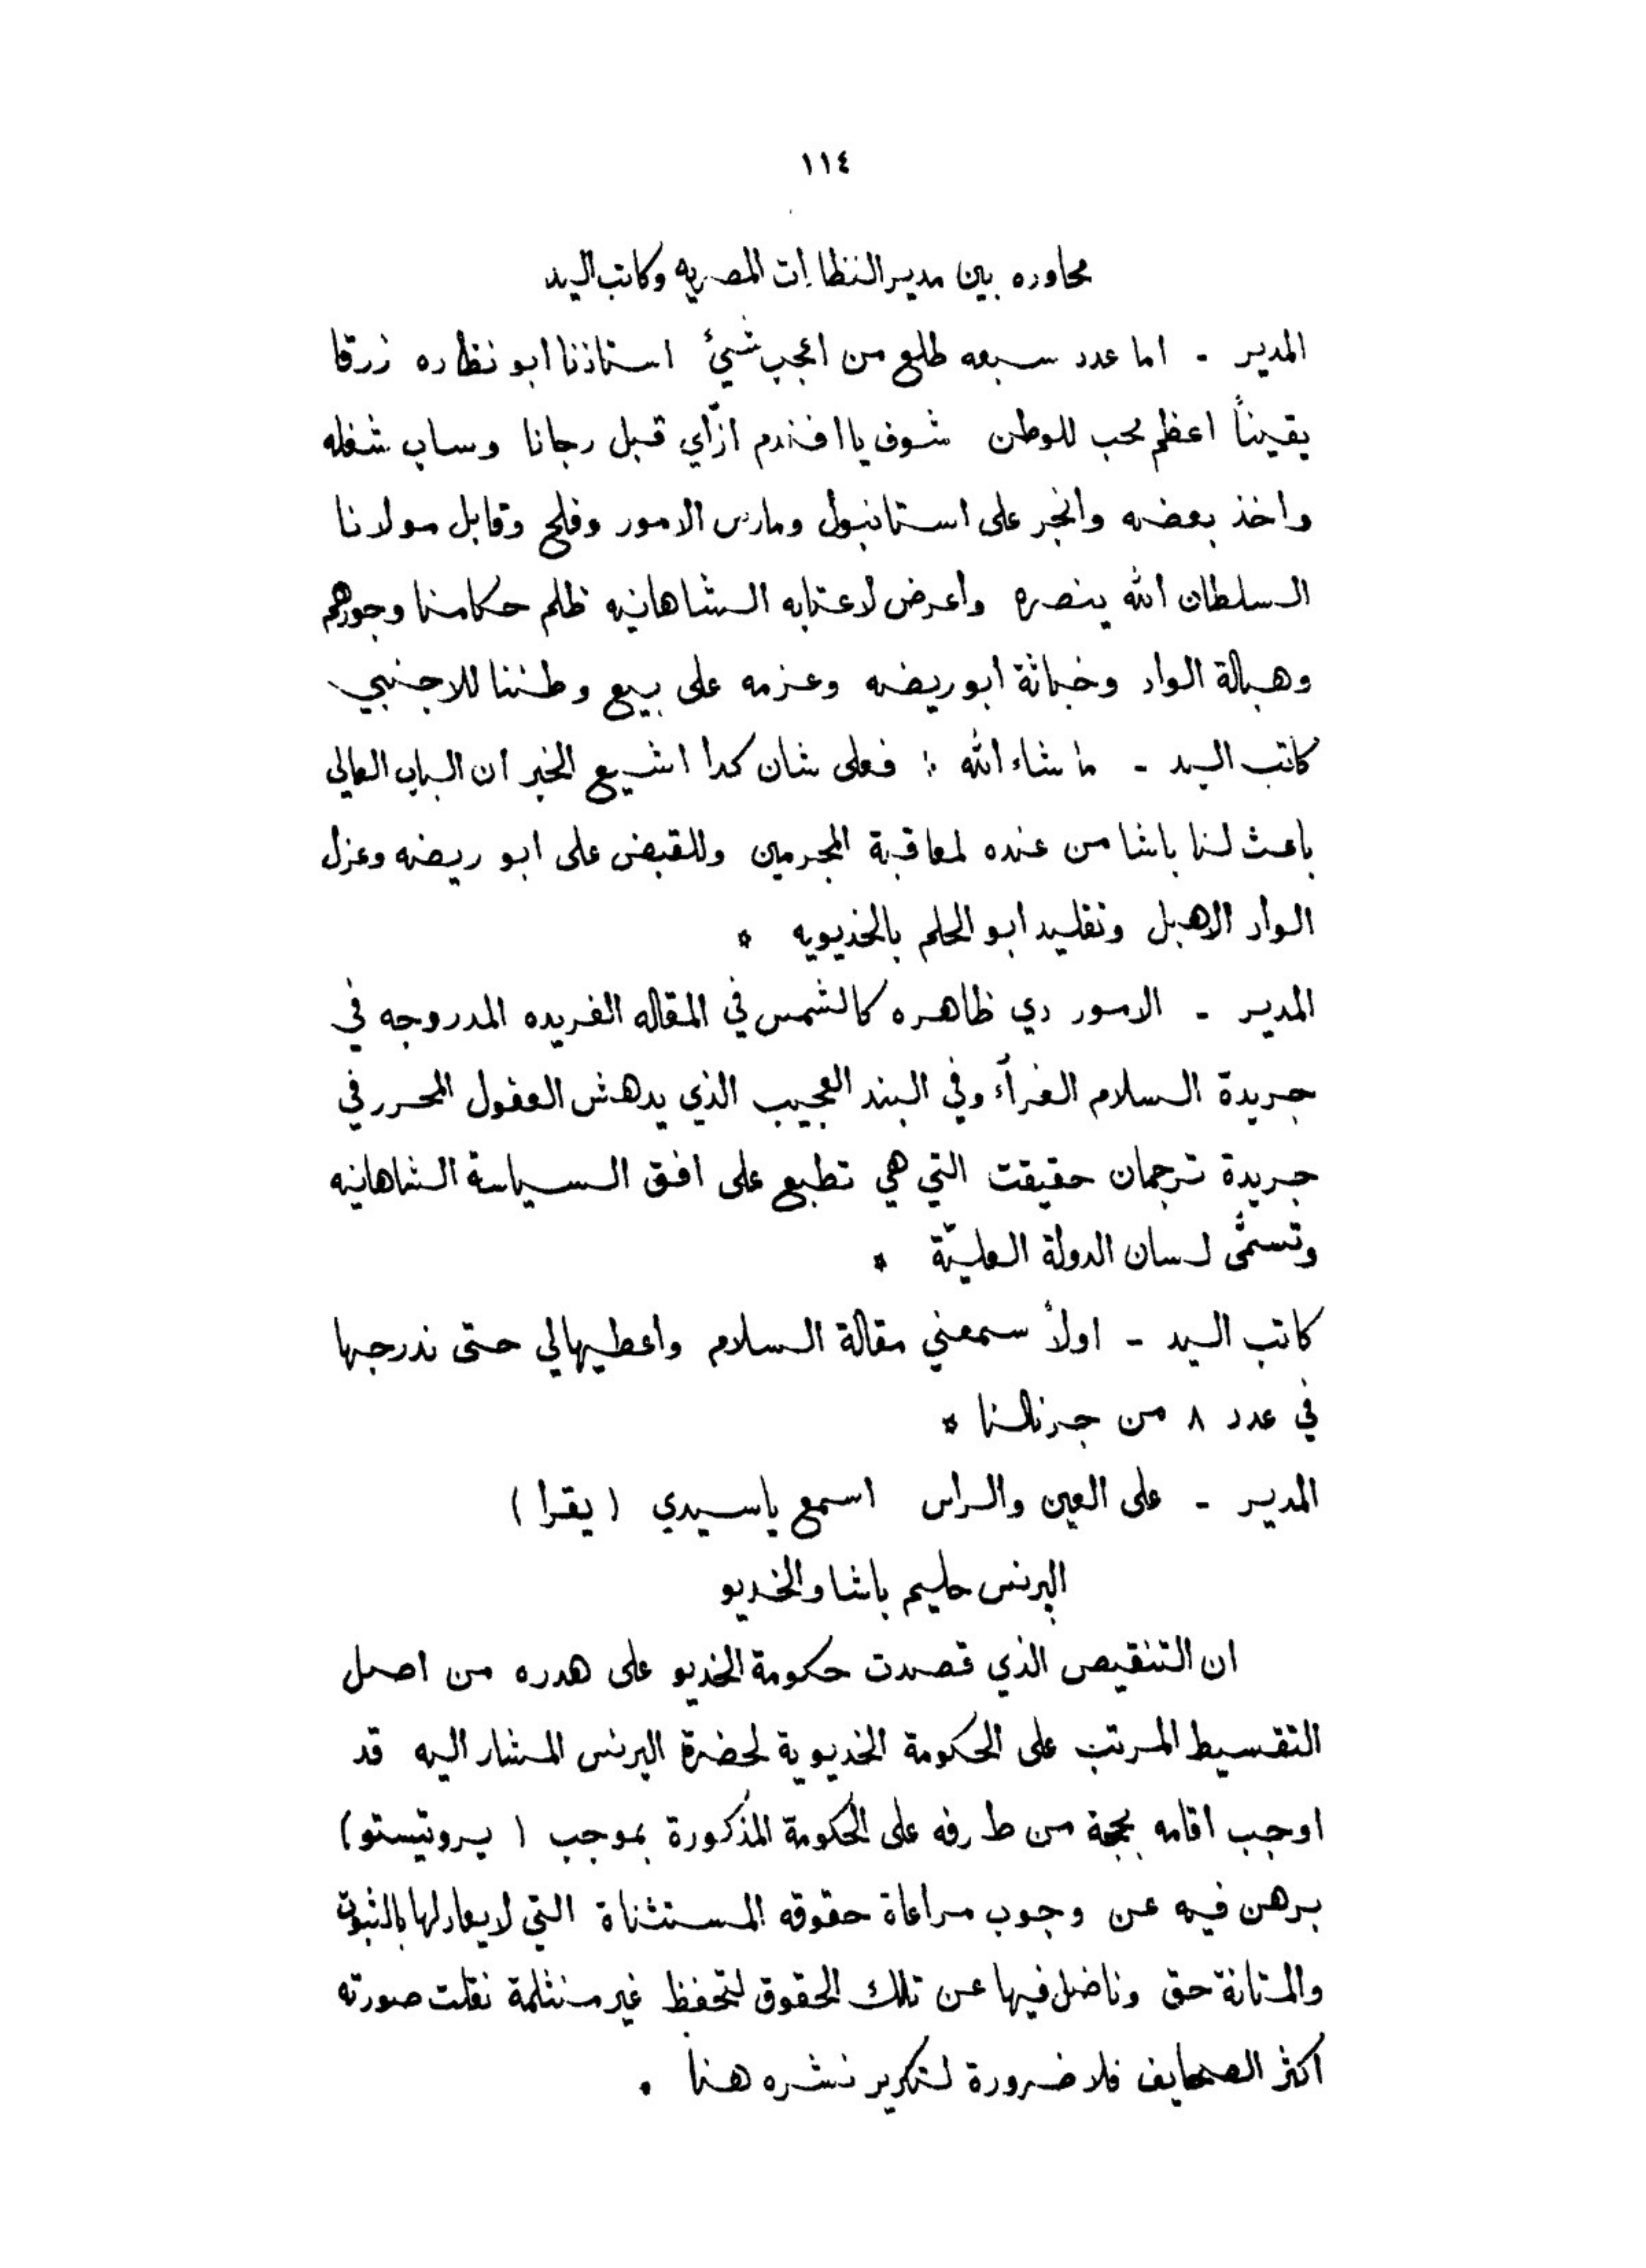 ١١٤
محاوره بين مدير النظارات المصريه وكاتب اليد
المدير - اما عدد سبعه طلع من اعجب شيئ استاذنا ابو نظاره زرقا
يقيناً اعظم محب للوطن شوف يا افندم ازّاي قبل رجانا وساب شغله
واخذ بعضه وانجر على استانبول ومارس الامور وفلح وقابل مولانا
السلطان الله ينصره واعرض لاعتابه الشاهانيه ظلم حكامنا وجورهم
وهبالة الواد وخباثة ابو ريضه وعزمه على بيع وطننا للاجنبي
كاتب اليد - ما شاء الله : فعلى شان كدا اشيع الخبر ان الباب العالي
باعث لنا باشا من عنده لمعاقبة المجرمين وللقبض على ابو ريضه وعزل
الواد الاهبل وتقليد ابو الحلم بالخديويه *
المدير - الامور دي ظاهره كالشمس في المقاله الفريده المدروجه في
جريدة السلام الغرآء وفي البند العجيب الذي يدهش العقول المحرر في
جريدة ترجمان حقيقت التي هي تطبع على افق السياسة الشاهانيه
وتسمّى لسان الدولة العليّة *
كاتب اليد - اولاً سمعني مقالة السلام واعطيهالي حتى ندرجها
في عدد ٨ من جرنالنا *
المدير - على العين والراس اسمع ياسيدي (يقرا)
البرنس حليم باشا والخديو
ان التنقيص الذي قصدت حكومة الخديو على هدره من اصل
التقسيط المرتب على الحكومة الخديوية لحضرة البرنس المشار اليه قد
اوجب اقامه بحجة من طرفه على الحكومة المذكورة بموجب (پروتيستو)
برهن فيه عن وجوب مراعاة حقوقه المستثناة التي لا يعادلها بالثبوت
والمتانة حق وناضل فيها عن تلك الحقوق لتحفظ غير منثلمة نقلت صورته
اكثر الصحايف فلا ضرورة لتكرير نشره هنا .